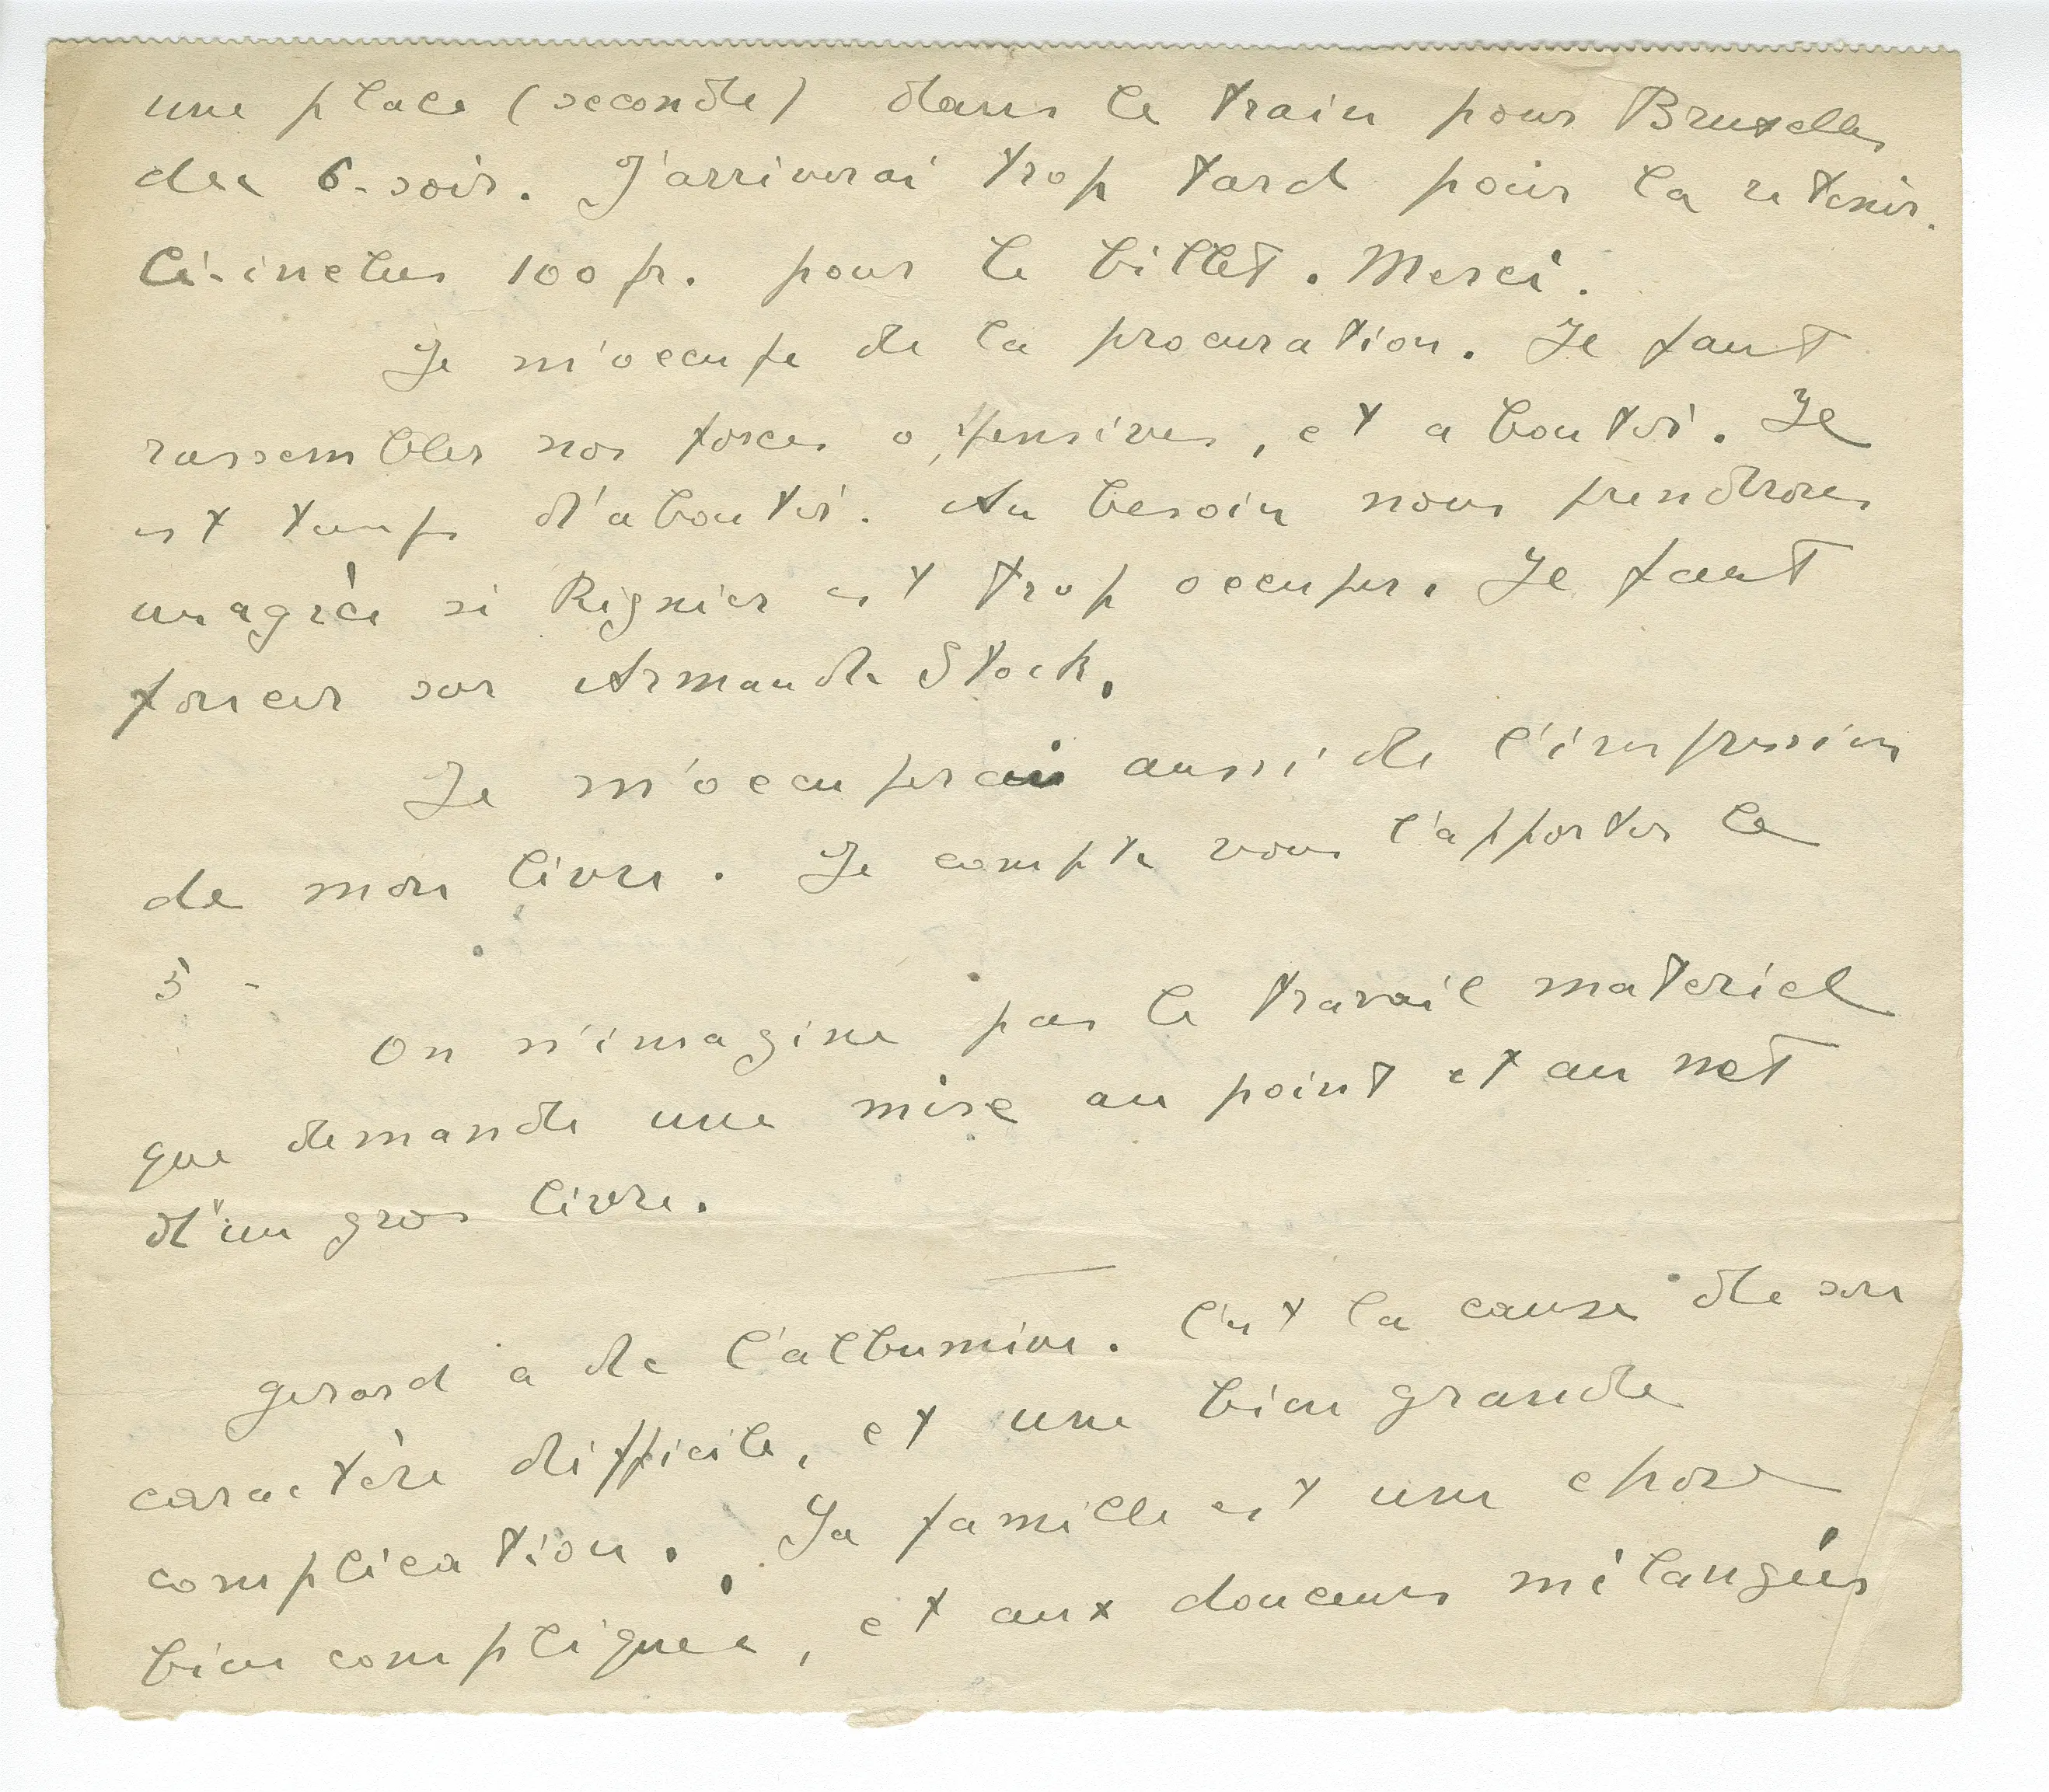 une place (seconde) dans le train pour Bruxelles
du 6. soir. J'arriverai trop tard pour la retenir.
Ci-inclus 100 fr. pour le billet. Merci.
Je m'occupe de la procuration. Il faut
rassembler nos forces offensives, et aboutir. Il
est temps d'aboutir. Au besoin nous prendrons
un agréé si Rignier est trop occuper. Il faut
foncer sur Armande Stock.
Je m'occuperai aussi de l'impression
de mon livre. Je compte vous l'apporter le
5 -
On n'imagine pas le travail materiel
que demande une mise au point et au net
d'un gros livre.
Gerard a de l'albumine. C'est la cause de son
caractère difficile, et une bien grande
complication. Sa famille est une chose
bien compliquée, et aux douceurs mélangées